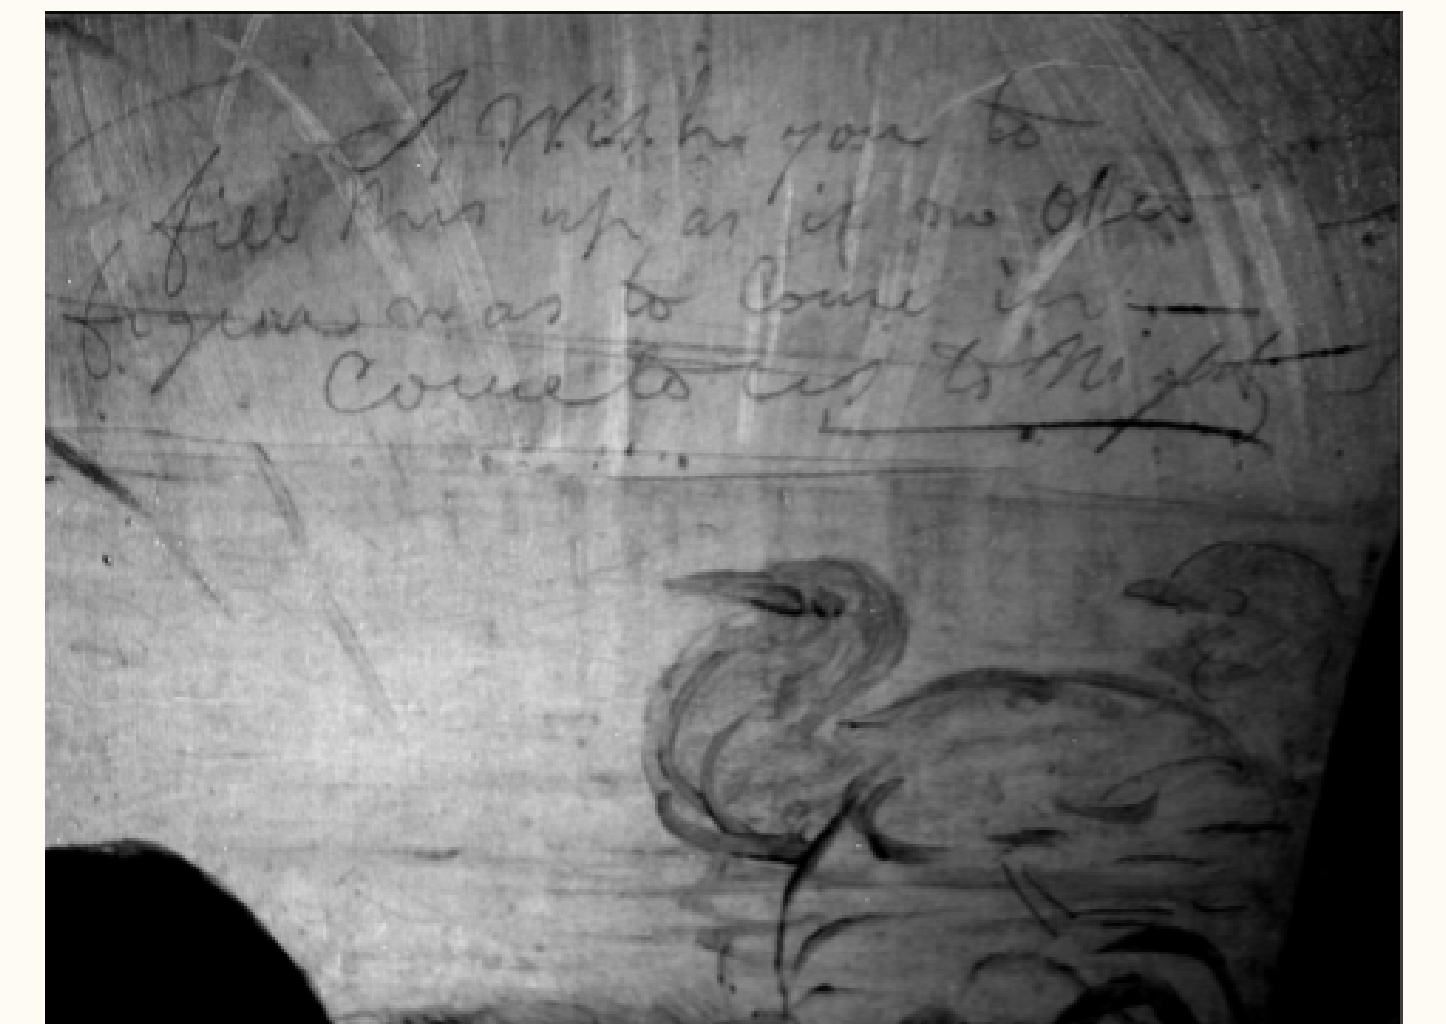 I Wish you to
fill this up as if no Other
figure was to Come in
Come to us to Night